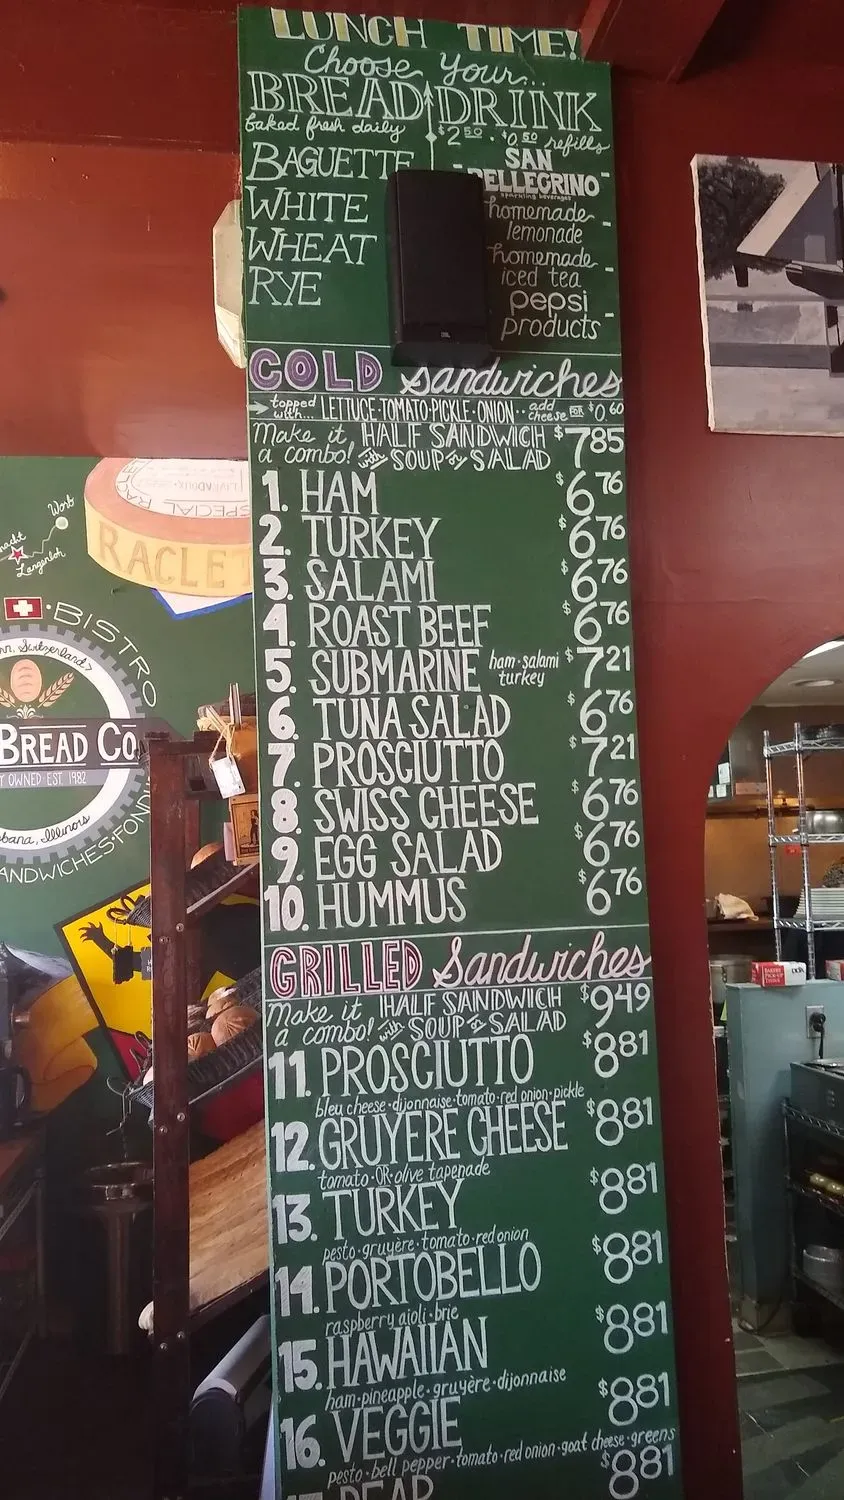 LUNCH TIME!
Choose Your...
BREAD DRINK
baked fresh daily
$2.50 · $0.50 refills
BAGUETTE
WHITE
WHEAT
RYE
SAN
PELLEGRINO
sparkling beverages
homemade
lemonade
homemade
iced tea
pepsi
products
COLD Sandwiches
topped with... LETTUCE·TOMATO·PICKLE·ONION·· add cheese FOR $0.60
Make it a combo! HALF SANDWICH with SOUP or SALAD $7.85
1. HAM $6.76
2. TURKEY $6.76
3. SALAMI $6.76
4. ROAST BEEF $6.76
5. SUBMARINE ham·salami turkey $7.21
6. TUNA SALAD $6.76
7. PROSCIUTTO $7.21
8. SWISS CHEESE $6.76
9. EGG SALAD $6.76
10. HUMMUS $6.76
GRILLED Sandwiches
Make it a combo! HALF SANDWICH with SOUP or SALAD $9.49
11. PROSCIUTTO $8.81
bleu cheese·dijonnaise·tomato·red onion·pickle
12. GRUYERE CHEESE $8.81
tomato·OR·olive tapenade
13. TURKEY $8.81
pesto·gruyère·tomato·red onion
14. PORTOBELLO $8.81
raspberry aioli·brie
15. HAWAIIAN $8.81
ham·pineapple·gruyère·dijonnaise
16. VEGGIE $8.81
pesto·bell pepper·tomato·red onion·goat cheese·greens
$8.81
Worb
Langenloh
SPECIAL
RACLET
·BISTRO
Switzerland
BREAD CO
OWNED·EST 1982
bana, Illinois
ANDWICHES·FOND